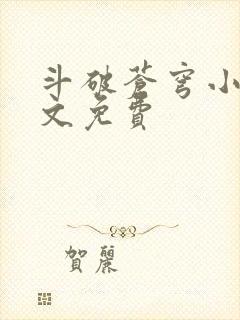 斗破苍穹小
文免费
贺丽